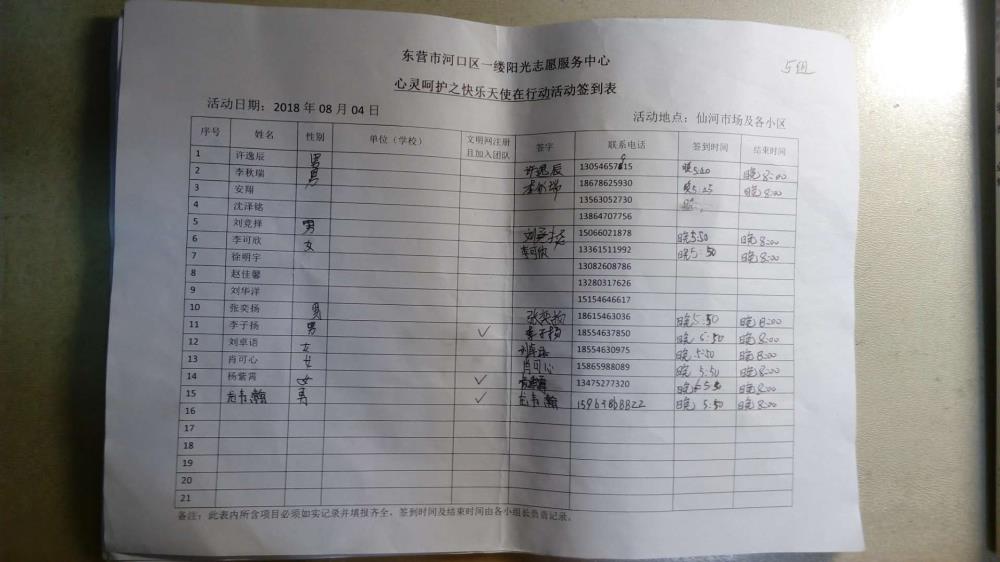 东营市河口区一缕阳光志愿服务中心
5组
心灵呵护之快乐天使在行动活动签到表
活动日期：2018年08月04日 活动地点：仙河市场及各小区
序号 姓名 性别 单位（学校） 文明网注册且加入团队 签字 联系电话 签到时间 结束时间
1 许逸辰 男 许逸辰 晚5:20 晚8:00
2 李秋瑞 男 李秋瑞 18678625930 晚5:25 晚8:00
3 安翔 13563052730
4 沈泽铭 13864707756
5 刘竞择 男 刘竞择 15066021878 晚5:50 晚8:00
6 李可欣 女 李可欣 13361511992 晚5:50 晚8:00
7 徐明宇 13082608786
8 赵佳馨 13280317626
9 刘华洋 15154646617
10 张奕扬 男 张奕扬 18615463036 晚5:50 晚8:00
11 李子扬 男 ✓ 李子扬 18554637850 晚5:50 晚8:00
12 刘卓语 女 刘卓语 18554630975 晚5:50 晚8:00
13 肖可心 女 肖可心 15865988089 晚5:50 晚8:00
14 杨紫菁 女 ✓ 13475277320 晚5:50 晚8:00
15 男 ✓ 晚5:50 晚8:00
16
17
18
19
20
21
备注：此表内所含项目必须如实记录并填报齐全，签到时间及结束时间由各小组长负责记录。